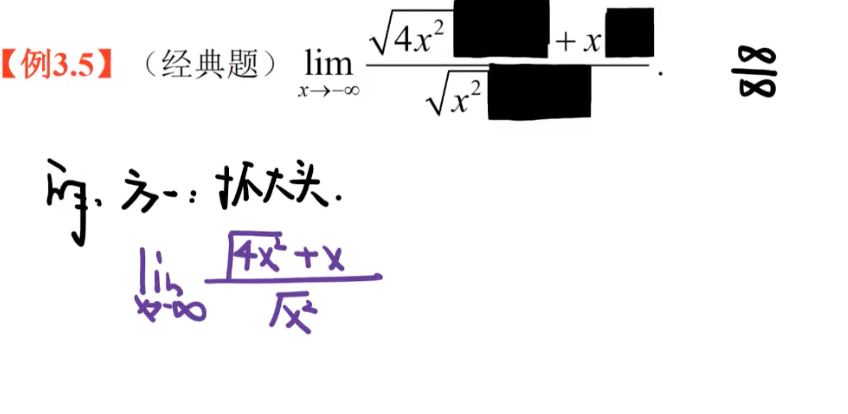 【例3.5】（经典题） lim x→-∞ (√4x² + x) / √x² .
∞/∞
解、方一：抓大头.
lim x→-∞ (√4x² + x) / √x²